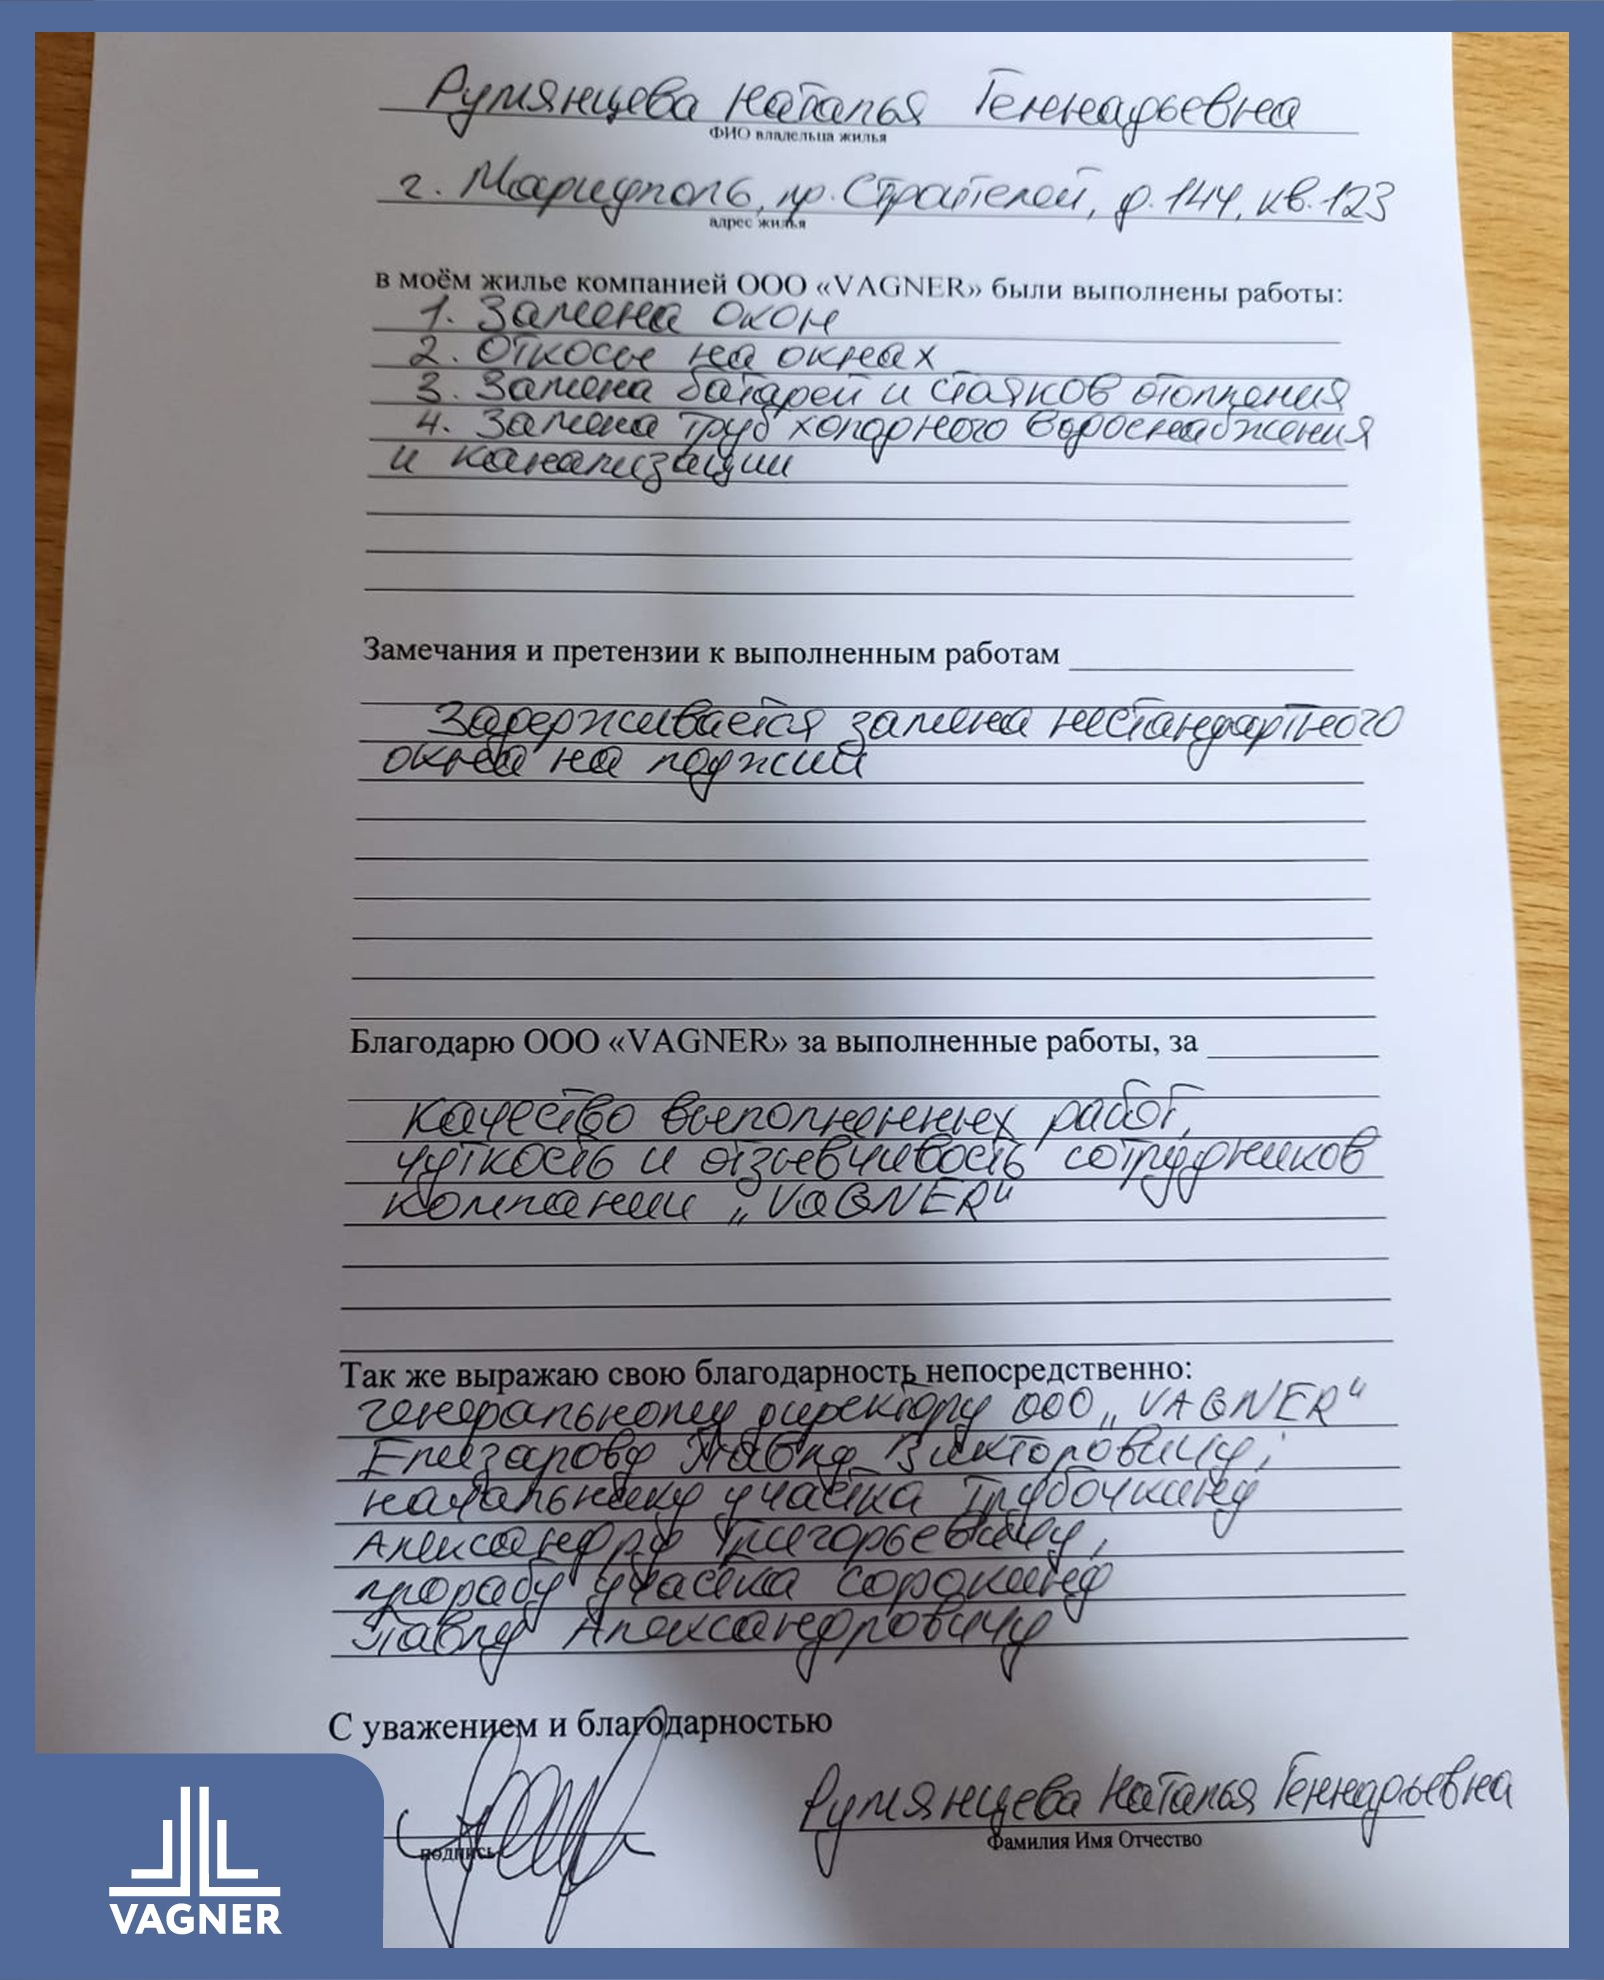 Румянцева Наталья Геннадьевна
ФИО владельца жилья
г. Мариуполь, пр. Строителей, д. 144, кв. 123
адрес жилья
в моём жилье компанией ООО «VAGNER» были выполнены работы:
1. Замена окон
2. Откосы на окнах
3. Замена батарей и стояков отопления
4. Замена труб холодного водоснабжения
и канализации
Замечания и претензии к выполненным работам
Задерживается замена нестандартного
окна на лоджии
Благодарю ООО «VAGNER» за выполненные работы, за
качество выполненных работ,
чуткость и отзывчивость сотрудников
компании „VAGNER“
Так же выражаю свою благодарность непосредственно:
генеральному директору ООО „VAGNER“
Елизарову Павлу Викторовичу;
начальнику участка Трубочкину
Александру Григорьевичу,
прорабу участка Сорокину
Павлу Александровичу
С уважением и благодарностью
Румянцева Наталья Геннадьевна
подпись
Фамилия Имя Отчество
VAGNER